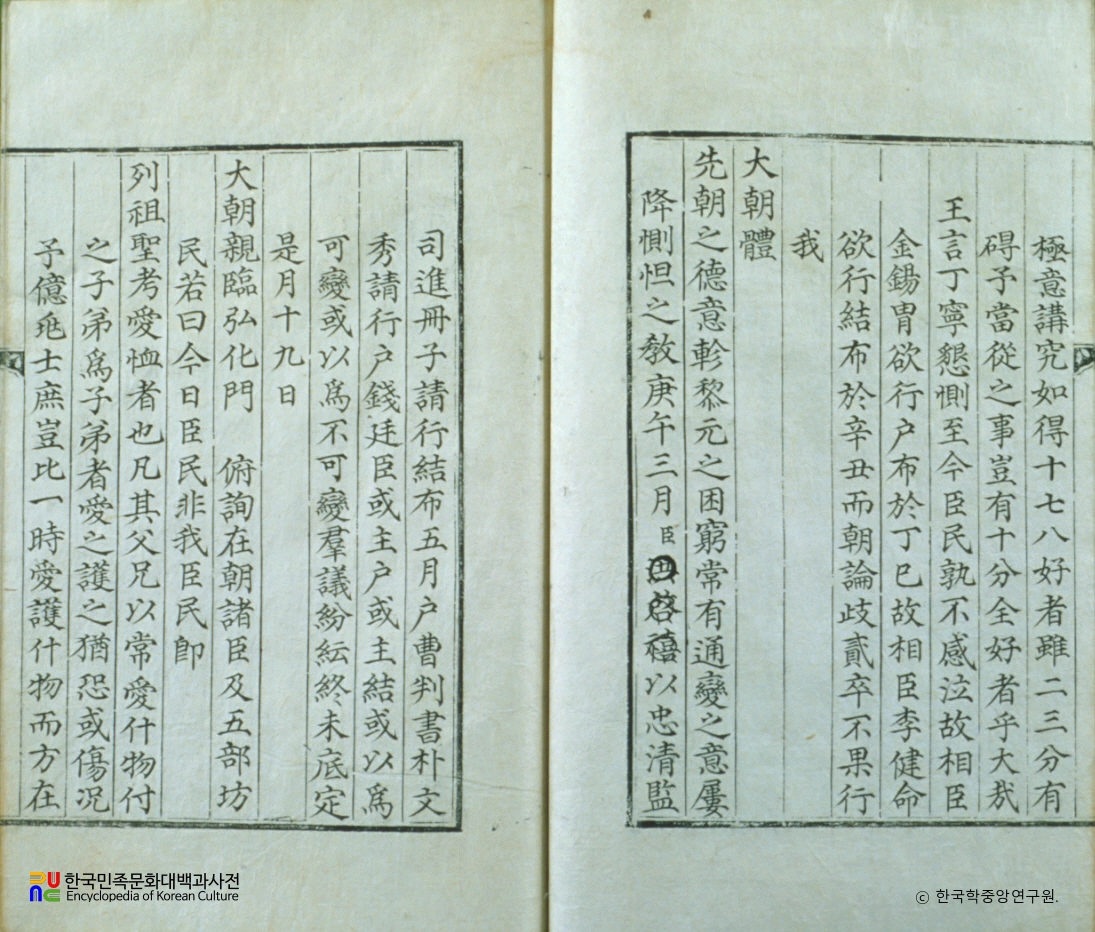 極意講究如得十七八好者雖二三分有
碍予當從之事豈有十分全好者乎大㢤
王言丁寧懇惻至今臣民孰不感泣故相臣
金錫胄欲行户布於丁巳故相臣李健命
欲行結布於辛丑而朝論歧貳卒不果行
我
大朝體
先朝之德意軫黎元之困窮常有通變之意屢
降惻怛之敎庚午三月臣啓禧以忠清監
司進冊子請行結布五月户曹判書朴文
秀請行户錢廷臣或主户或主結或以爲
可變或以爲不可變羣議紛紜終未底定
是月十九日
大朝親臨弘化門 俯詢在朝諸臣及五部坊
民若曰今日臣民非我臣民卽
列祖聖考愛恤者也凡其父兄以常愛什物付
之子弟爲子弟者愛之護之猶恐或傷况
予億兆士庶豈比一時愛護什物而方在
한국민족문화대백과사전
Encyclopedia of Korean Culture
© 한국학중앙연구원.